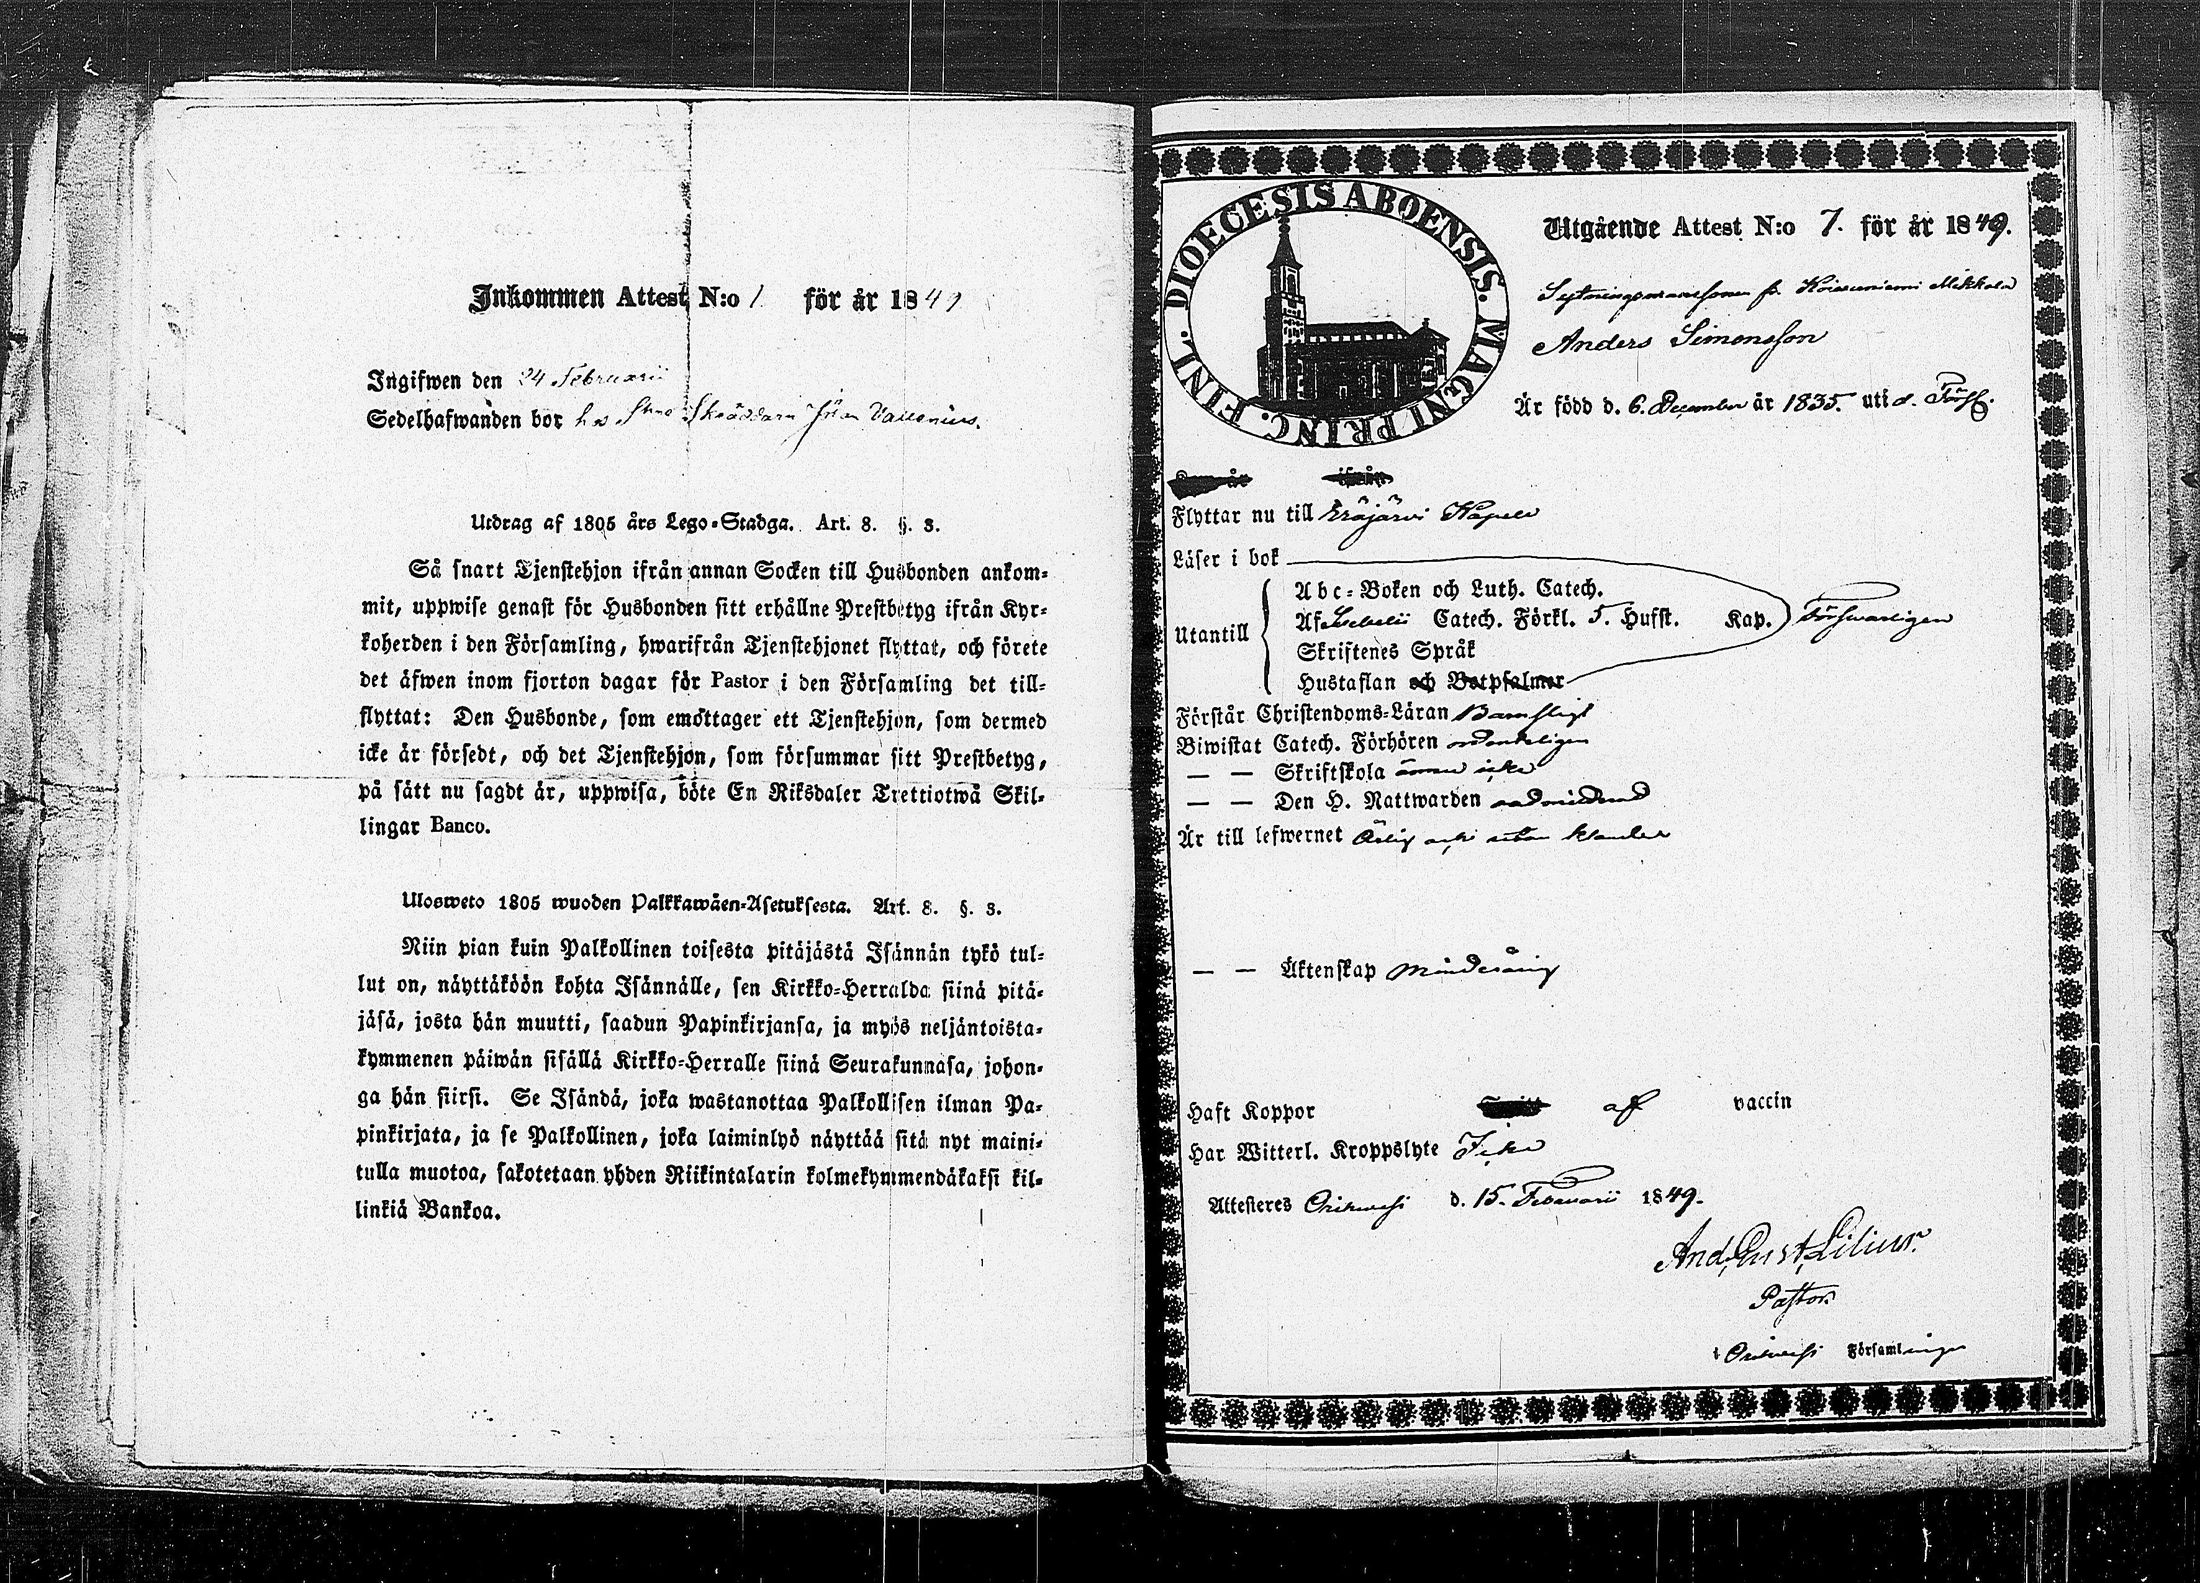 Inkommen Attest N:o 1 för år 1849
Ingifwen den 24 Februarii
Sedelhafwanden bor hos Skräddarn Vallenius.
Utdrag af 1805 års Lego-Stadga. Art. 8. §. 3.
Så snart Tjenstehjon ifrån annan Socken till Husbonden ankom-
mit, uppwise genast för Husbonden sitt erhållne Prestbetyg ifrån Kyr-
koherden i den Församling, hwarifrån Tjenstehjonet flyttat, och förete
det äfwen inom fjorton dagar för Pastor i den Församling det till-
flyttat: Den Husbonde, som emottager ett Tjenstehjon, som dermed
icke är försedt, och det Tjenstehjon, som försummar sitt Prestbetyg,
på sätt nu sagdt är, uppwisa, böte En Riksdaler Trettiotwå Skil-
lingar Banco.
Ulosweto 1805 wuoden Palkkawäen-Asetuksesta. Art. 8. §. 3.
Niin pian kuin Palkollinen toisesta pitäjästä Isännän tykö tul-
lut on, näyttäköön kohta Isännälle, sen Kirkko-Herralda siinä pitä-
jäsä, josta hän muutti, saadun Papinkirjansa, ja myös neljäntoista-
kymmenen päiwän sisällä Kirkko-Herralle siinä Seurakunnasa, johon-
ga hän siirsi. Se Isändä, joka wastanottaa Palkollisen ilman Pa-
pinkirjata, ja se Palkollinen, joka laiminlyö näyttää sitä nyt maini-
tulla muotoa, sakotetaan yhden Riikintalarin kolmekymmendäkaksi kil-
linkiä Bankoa.
DIOECESIS ABOENSIS. MAGNI PRINC. FINL.
Utgående Attest N:o 7. för år 1849.
Sytningsmanssonen fr. Koivuniemi Mikkola
Anders Simonsson
Är född d. 6. December år 1835. uti d. Förs.
ifrån
Flyttar nu till Eräjärvi Kapell
Läser i bok
Utantill
Abc-Boken och Luth. Catech.
Af Svebelii Catech. Förkl. 5. Hufst. Kap. Försvarligen
Skriftenes Språk
Hustaflan och Botpsalmer
Förstår Christendoms-Läran Barnsligt
Biwistat Catech. Förhören ordenteligen
— — Skriftskola ännu icke
— — Den H. Nattwarden oadmitterad
Är till lefwernet Ärlig och utan klander
— — Äktenskap minderårig
Haft Koppor af vaccin
Har Witterl. Kroppslyte Icke
Attesteres Orihvesi d. 15. Februarii 1849.
And. Gust. Lilius.
Pastor.
i Orihvesi Församlingen